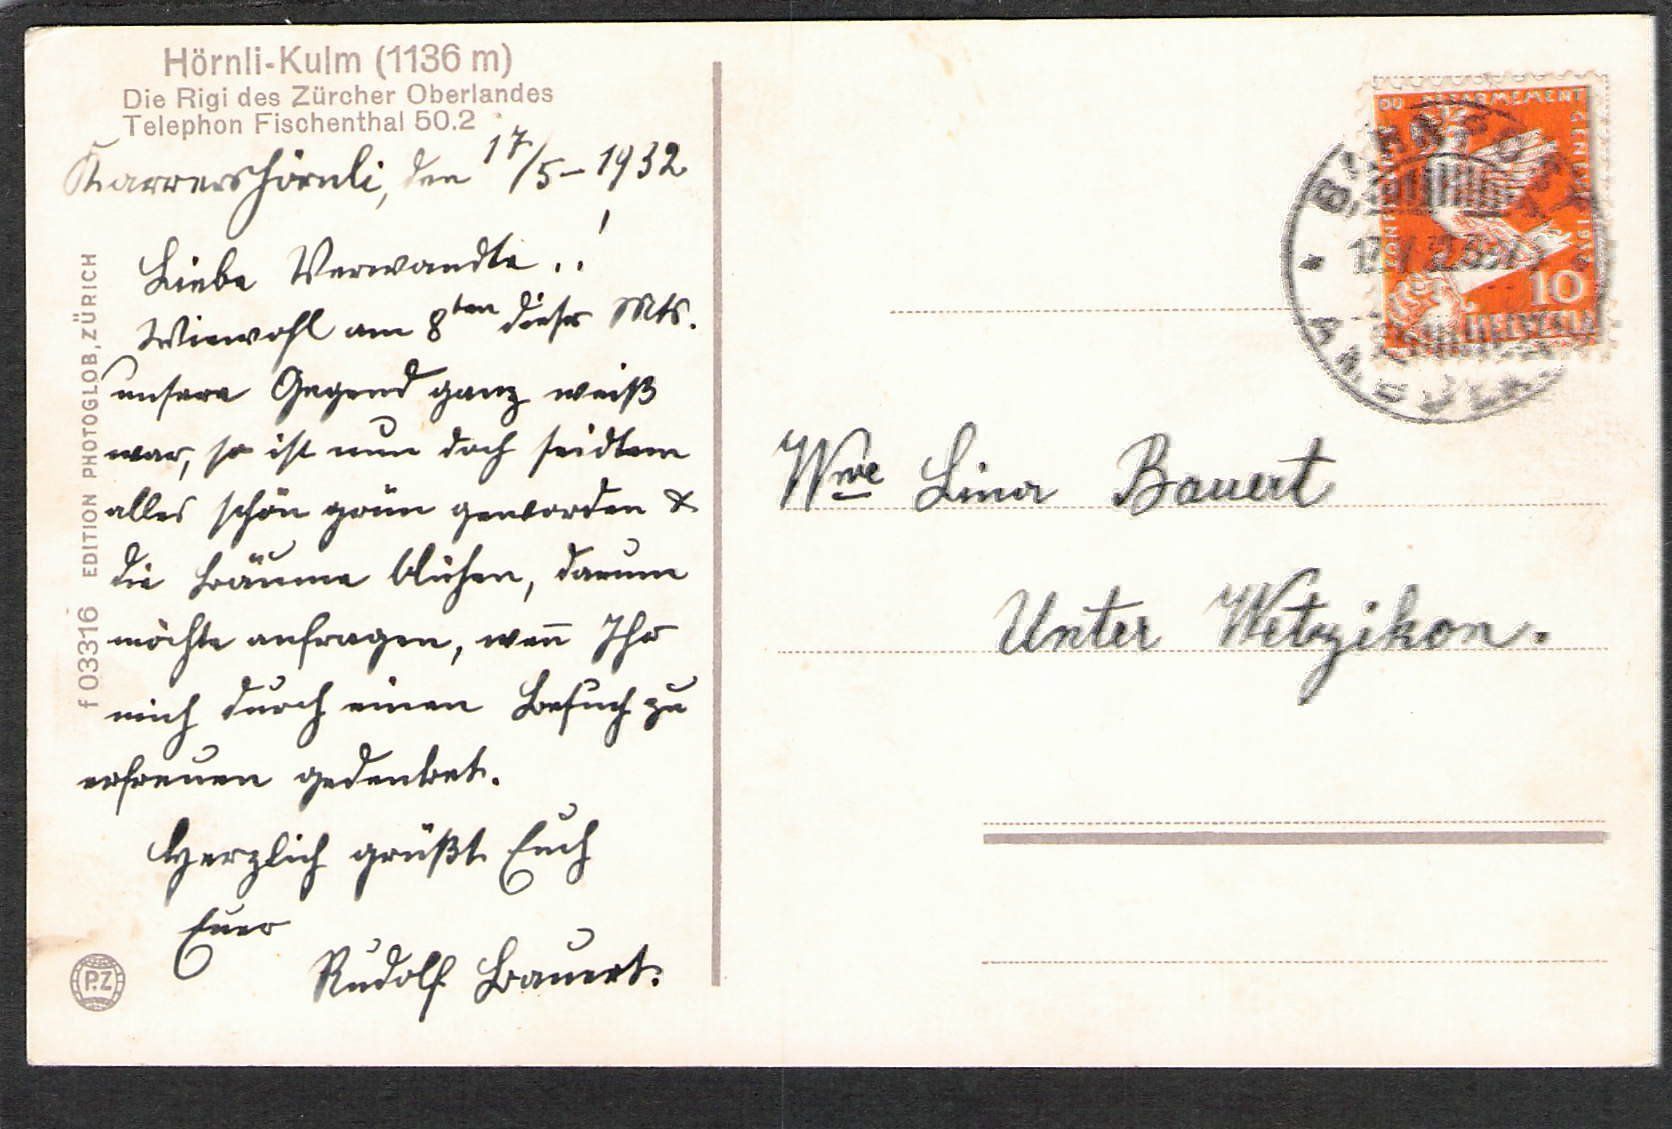 Hörnli-Kulm (1136 m)
Die Rigi des Zürcher Oberlandes
Telephon Fischenthal 50.2
Karrershörnli, den 17/5 – 1932
Liebe Verwandte..!
Wiewohl am 8ten dieses Mts.
unsere Gegend ganz weiß
war, so ist nun doch seidtem
alles schön grün geworden &
die Bäume blühen, darum
möchte anfragen, wen̅ Ihr
mich durch einen Besuch zu
erfreuen gedenket.
Herzlich grüßt Euch
Euer
Rudolf Bauert.
f 03316 EDITION PHOTOGLOB, ZÜRICH
P.Z
Wwe Lina Bauert
Unter Wetzikon.
DU DÉSARMEMENT
GENÈVE 1932
10
HELVETIA